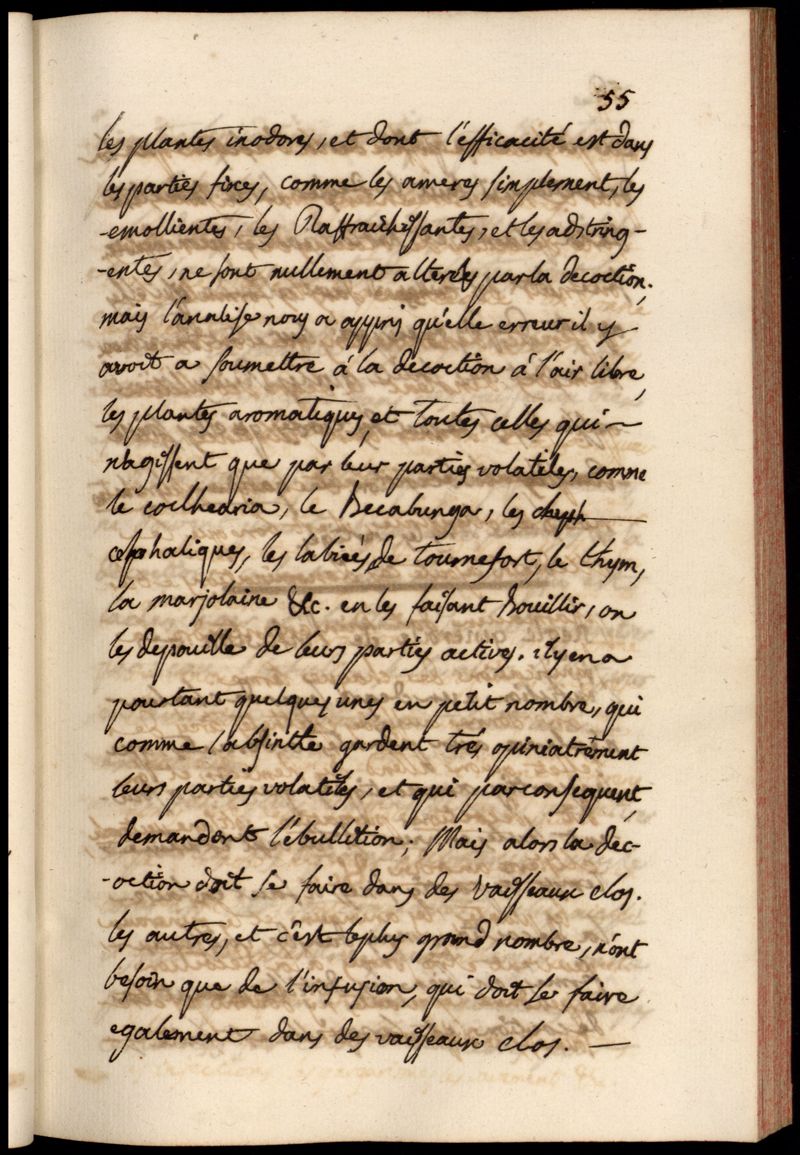 55
les plantes inodores, et dont l'efficacité est dans
les parties fixes, comme les ameres simplement, les
-emollientes, les Raffraichissantes, et les adstring-
-entes, ne sont nullement alterées par la decoction.
mais l'analise nous a appris qu'elle erreur il y
avoit a soumettre á la decoction á l'air libre,
les plantes aromatiques, et toutes celles qui
n'agissent que par leur parties volatiles, comme
le coclhearia, le Becabunga, les
cephaliques, les labieés de tournefort, le thym,
la marjolaine &c. en les faisant bouillir, on
les depouille de leurs parties actives. il y en a
pourtant quelques unes en petit nombre, qui
comme l'absinthe gardent trés opiniatrément
leurs parties volatiles, et qui par consequent,
demandent l'ébullition; Mais alors la dec-
-oction doit se faire dans des vaisseaux clos.
les autres, et c'est le plus grand nombre, n'ont
besoin que de l'infusion, qui doit se faire
egalement dans des vaisseaux clos. —